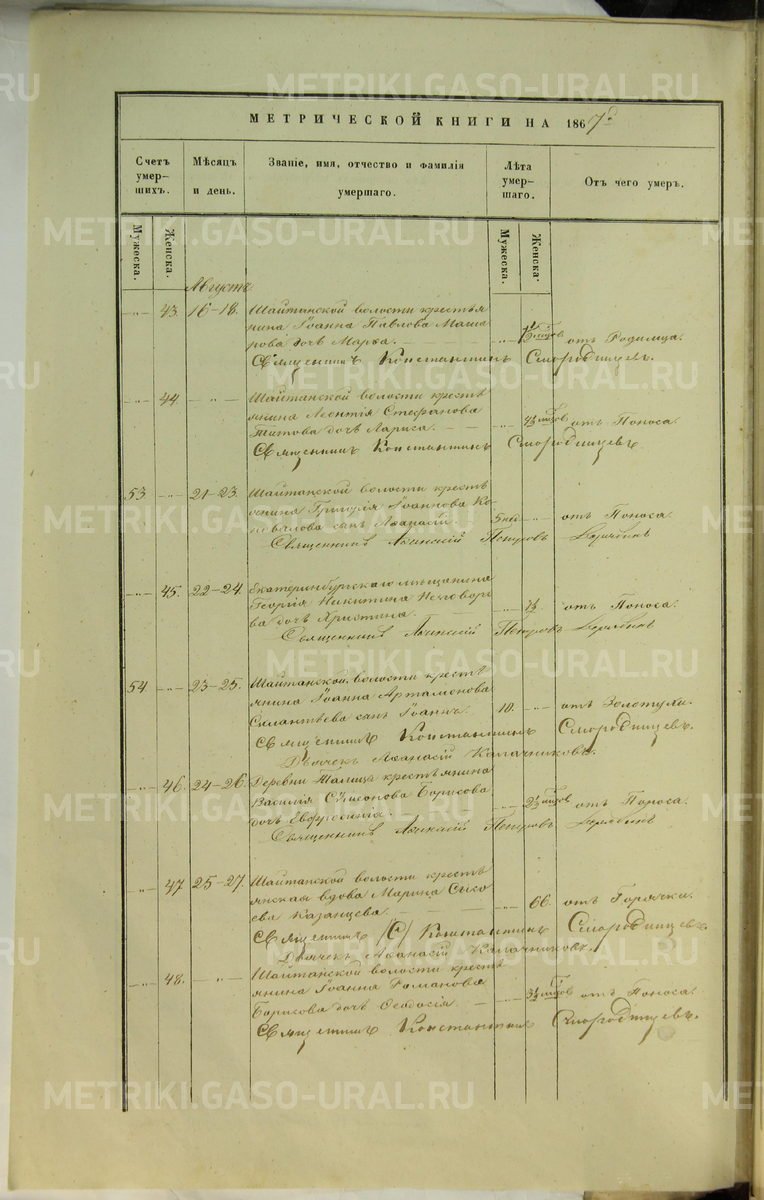 METRIKI.GASO-URAL.RU
МЕТРИЧЕСКОЙ КНИГИ НА 1867 г.
Счетъ умер-шихъ. Мѣсяцъ и день. Званіе, имя, отчество и фамилія умершаго. Лѣта умер-шаго. Отъ чего умеръ.
Мужеска. Женска. Мужеска. Женска.
Августъ
43. 16–18. Шайтанской волости крестья
нина Іоанна Павлова Маша
рова дочь Марѳа. отъ Родимца.
Священникъ Константинъ Смородинцевъ.
44 Шайтанской волости кресть
янина Леонтія Стефанова
Титова дочь Лариса. отъ Поноса.
Священникъ Константинъ Смородинцевъ
53 21–23. Шайтанской волости кресть
янина Григорія Іоаннова Ко
новалова сынъ Аѳанасій. 5 нед. отъ Поноса.
Священникъ Аѳанасій Петровъ
45. 22–24. Екатеринбургскаго мѣщанина
Георгія Никитина
дочь Христина. отъ Поноса.
Священникъ Аѳанасій Петровъ
54 23–25. Шайтанской волости кресть
янина Іоанна Артамонова
Силантьева сынъ Іоаннъ. 10. отъ Золотухи.
Священникъ Константинъ Смородинцевъ.
Дьячекъ Аѳанасій Калачниковъ.
46. 24–26. Деревни Талица крестьянина
Василія Борисова
дочь Евфросинія. отъ Поноса.
Священникъ Аѳанасій Петровъ
47 25–27. Шайтанской волости кресть
янская вдова Марина Сысо
ева Казанцева. 66. отъ Горячки.
Священникъ (С) Константинъ Смородинцевъ
Дьячекъ Аѳанасій Калачниковъ.
48. Шайтанской волости кресть
янина Іоанна Романова
Борисова дочь Ѳеодосія. отъ Поноса.
Священникъ Константинъ Смородинцевъ.